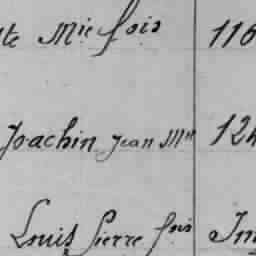 te Mie fois 116
Joachin Jean Mie 124
Louis Pierre fois